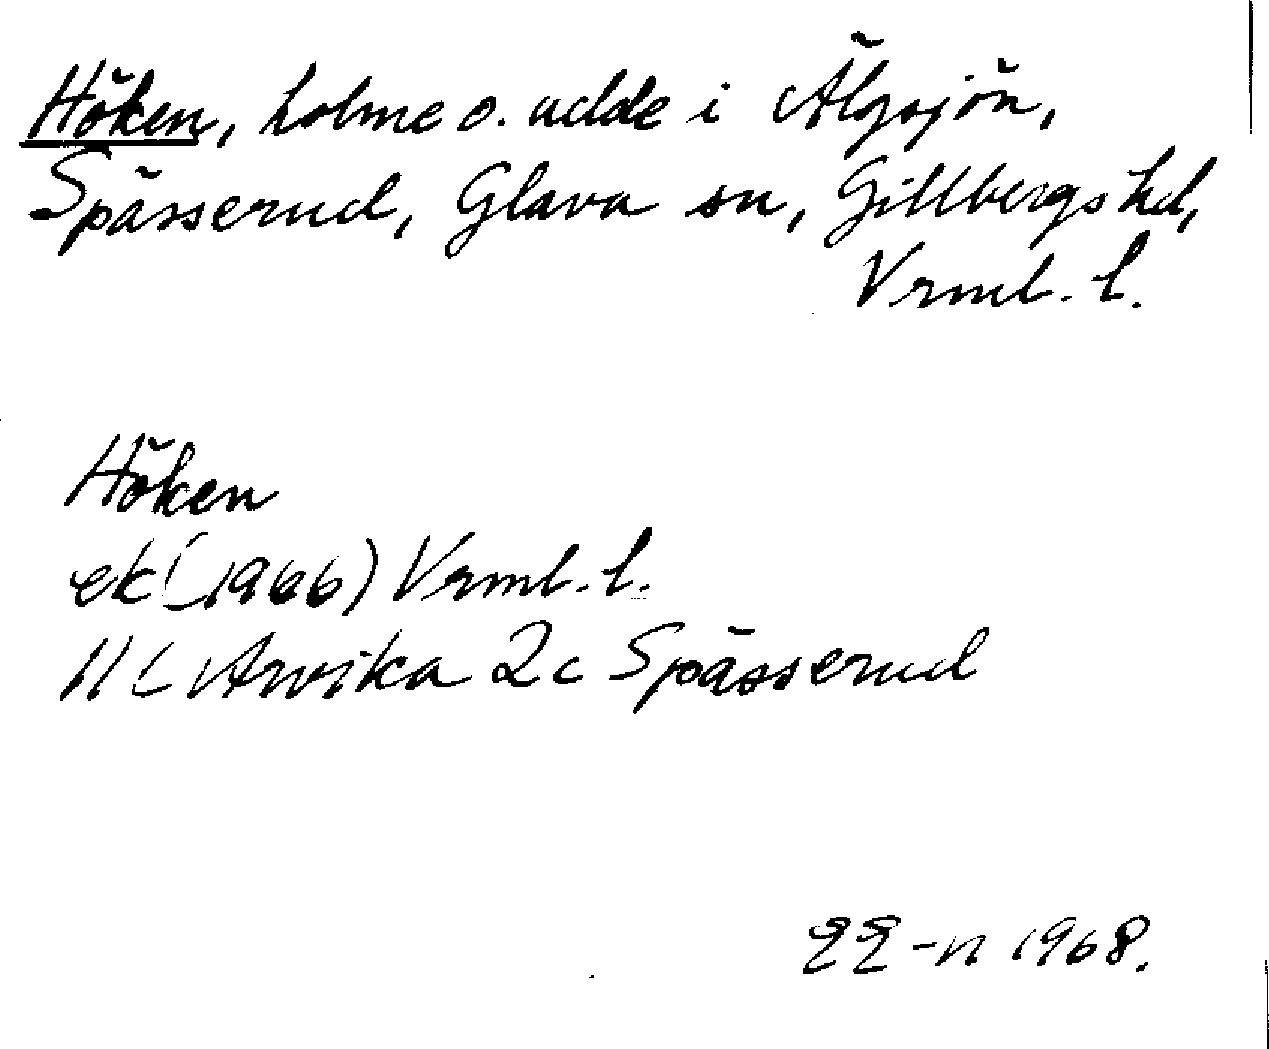 Höken, holme o. udde i Älgsjön,
Spässerud, Glava sn, Gillbergs hd,
Vrml. l.
Höken
ek (1966) Vrml. l.
11 C Arvika 2c Spässerud
EE-n 1968.